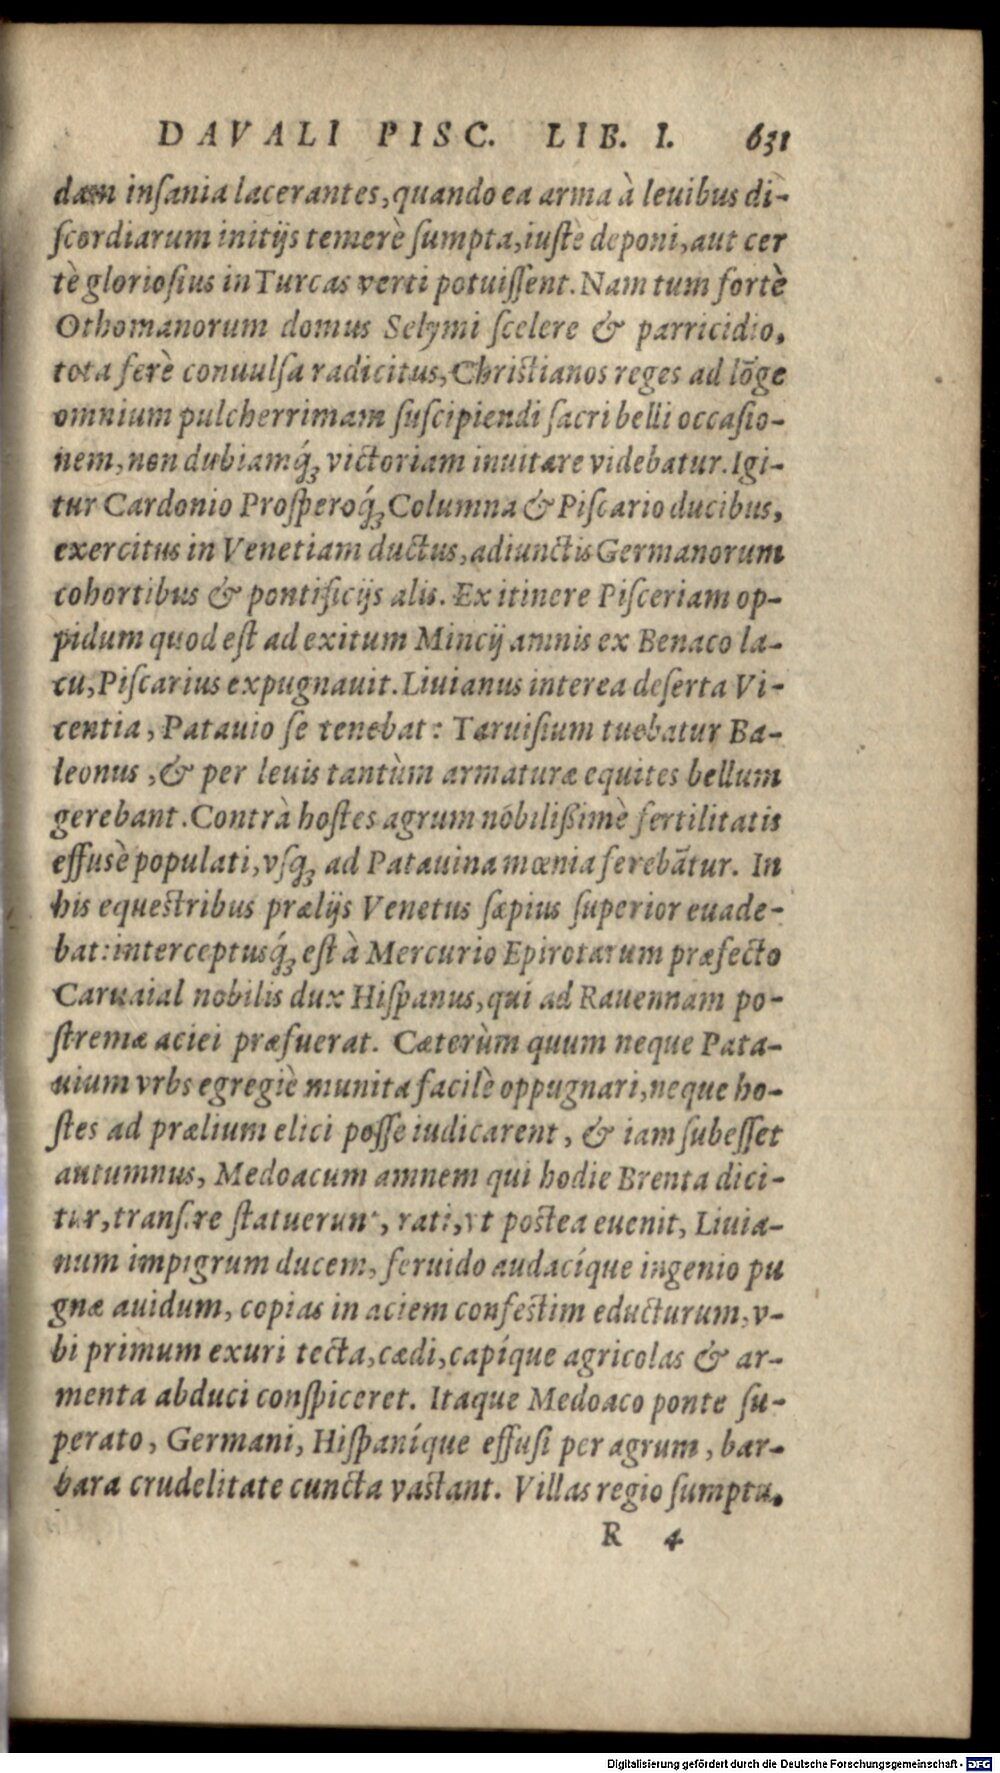 DAVALI PISC. LIB. I. 631
dam inſania lacerantes, quando ea arma à leuibus di-
ſcordiarum initijs temerè ſumpta, iuſtè deponi, aut cer
tè glorioſius in Turcas verti potuiſſent. Nam tum fortè
Othomanorum domus Selymi ſcelere & parricidio,
tota ferè conuulſa radicitus, Christianos reges ad lõge
omnium pulcherrimam ſuſcipiendi ſacri belli occaſio-
nem, non dubiamq́; victoriam inuitare videbatur. Igi-
tur Cardonio Proſperoq́; Columna & Piſcario ducibus,
exercitus in Venetiam ductus, adiunctis Germanorum
cohortibus & pontificijs alis. Ex itinere Piſceriam op-
pidum quod eſt ad exitum Mincij amnis ex Benaco la-
cu, Piſcarius expugnauit. Liuianus interea deſerta Vi-
centia, Patauio ſe tenebat: Taruiſium tuebatur Ba-
leonus, & per leuis tantùm armaturæ equites bellum
gerebant. Contrà hoſtes agrum nobilißimè fertilitatis
effusè populati, vſq; ad Patauina mœnia ferebãtur. In
his equestribus prælijs Venetus ſæpius ſuperior euade-
bat: interceptusq́; eſt à Mercurio Epirotarum præfecto
Caruaial nobilis dux Hiſpanus, qui ad Rauennam po-
ſtremæ aciei præfuerat. Cæterùm quum neque Pata-
uium vrbs egregiè munita facilè oppugnari, neque ho-
ſtes ad prælium elici poſſe iudicarent, & iam ſubeſſet
autumnus, Medoacum amnem qui hodie Brenta dici-
tur, tranſire ſtatuerunt, rati, vt postea euenit, Liuia-
num impigrum ducem, feruido audacíque ingenio pu
gnæ auidum, copias in aciem confestim educturum, v-
bi primum exuri tecta, cædi, capíque agricolas & ar-
menta abduci conſpiceret. Itaque Medoaco ponte ſu-
perato, Germani, Hiſpaníque effuſi per agrum, bar-
bara crudelitate cuncta vastant. Villas regio ſumptu.
R 4
Digitalisierung gefördert durch die Deutsche Forschungsgemeinschaft - DFG